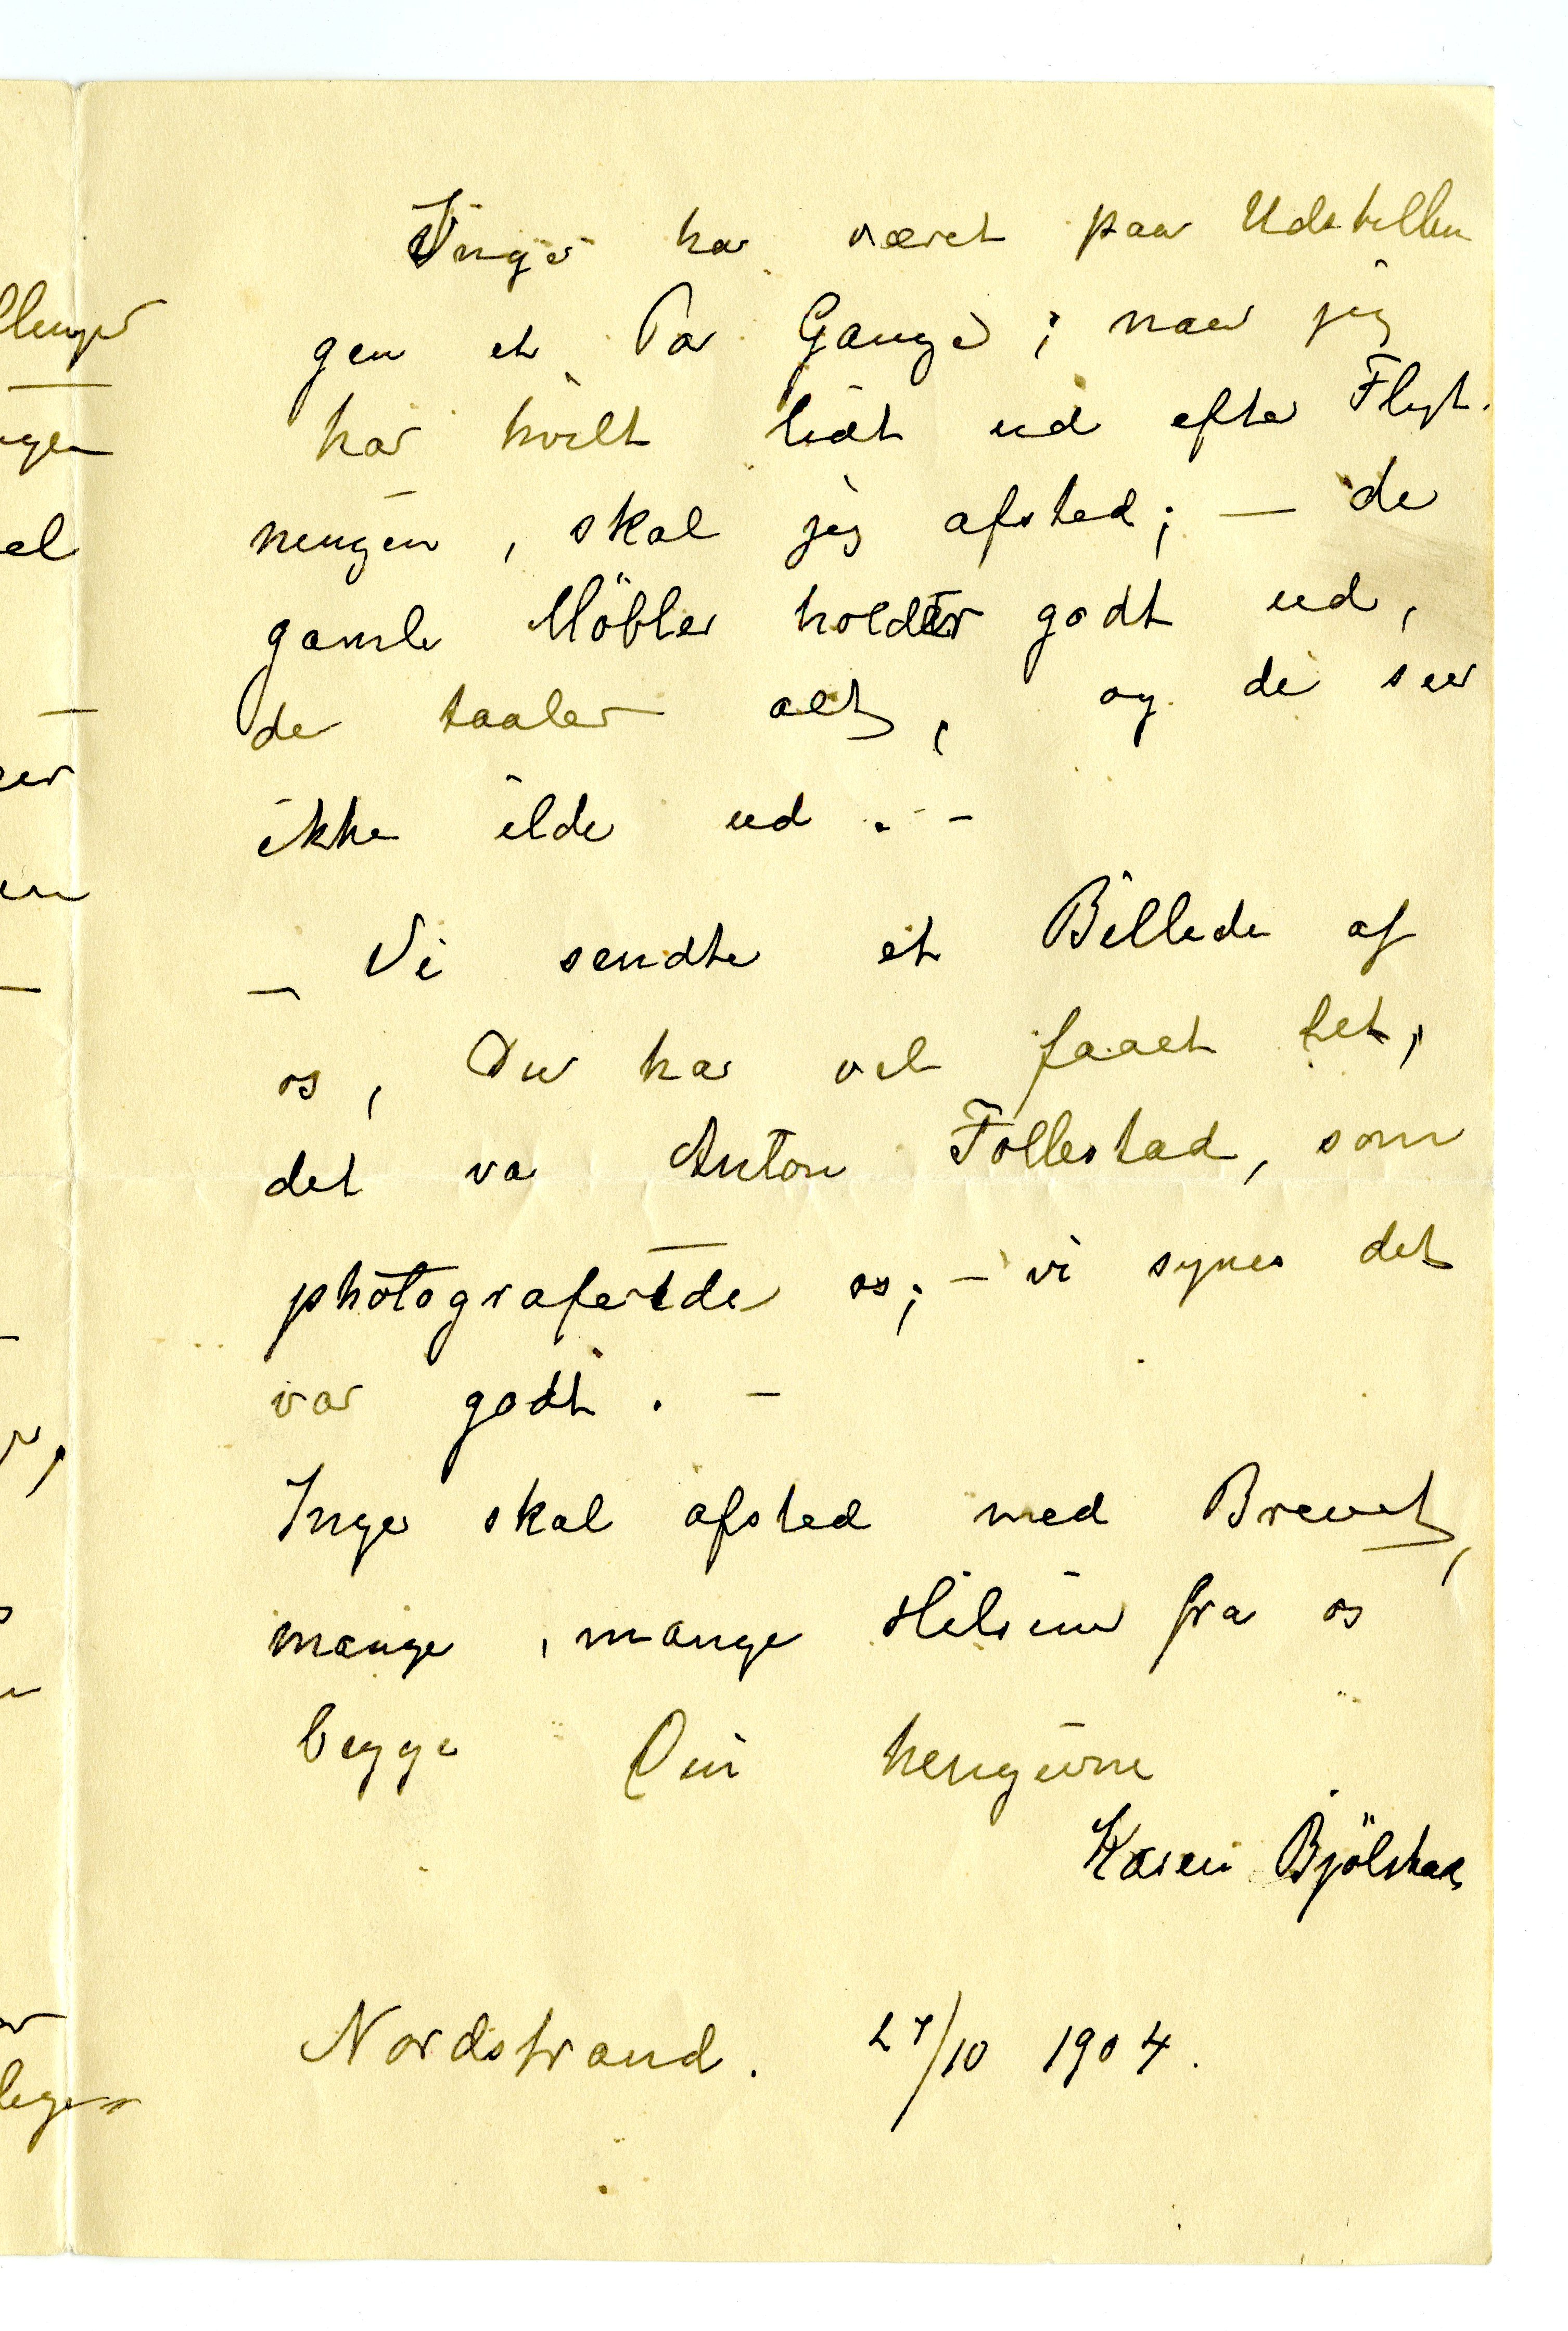 Inger har været paa Udstillin
gen et Par Gange; naar jeg
har hvilt lidt ud efter Flyt-
ningen, skal jeg afsted; — de
gamle Möbler holder godt ud,
de taaler alt, og de seer
ikke ilde ud. –
– Vi sendte et Billede af
os, Du har vel faaet det,
det var Anton Follestad, som
photograferede os; – vi synes det
var godt. –
Inger skal afsted med Brevet,
mange, mange Hilsener fra os
begge Din hengivne
Karen Bjölstad
Nordstrand. 27/10 1904.